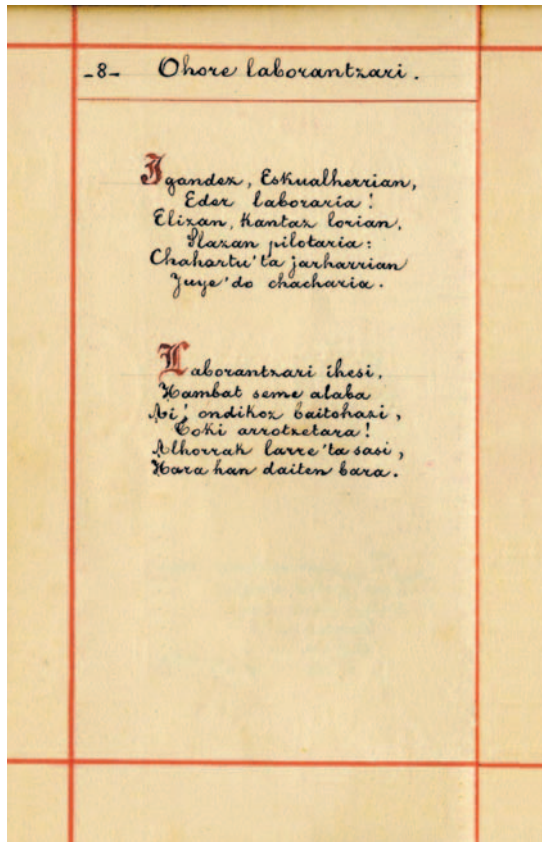 -8- Ohore laborantzari.
Igandez, Eskualherrian,
Eder laboraria!
Elizan, Kantaz lorian,
Plazan pilotaria:
Chahartu'ta jarharrian
Juye'do chacharia.
Laborantzari ihesi,
Hambat seme alaba
Ai! ondikoz baitohazi,
Toki arrotzetara!
Alhorrak larre'ta sasi,
Hara han daiten bara.